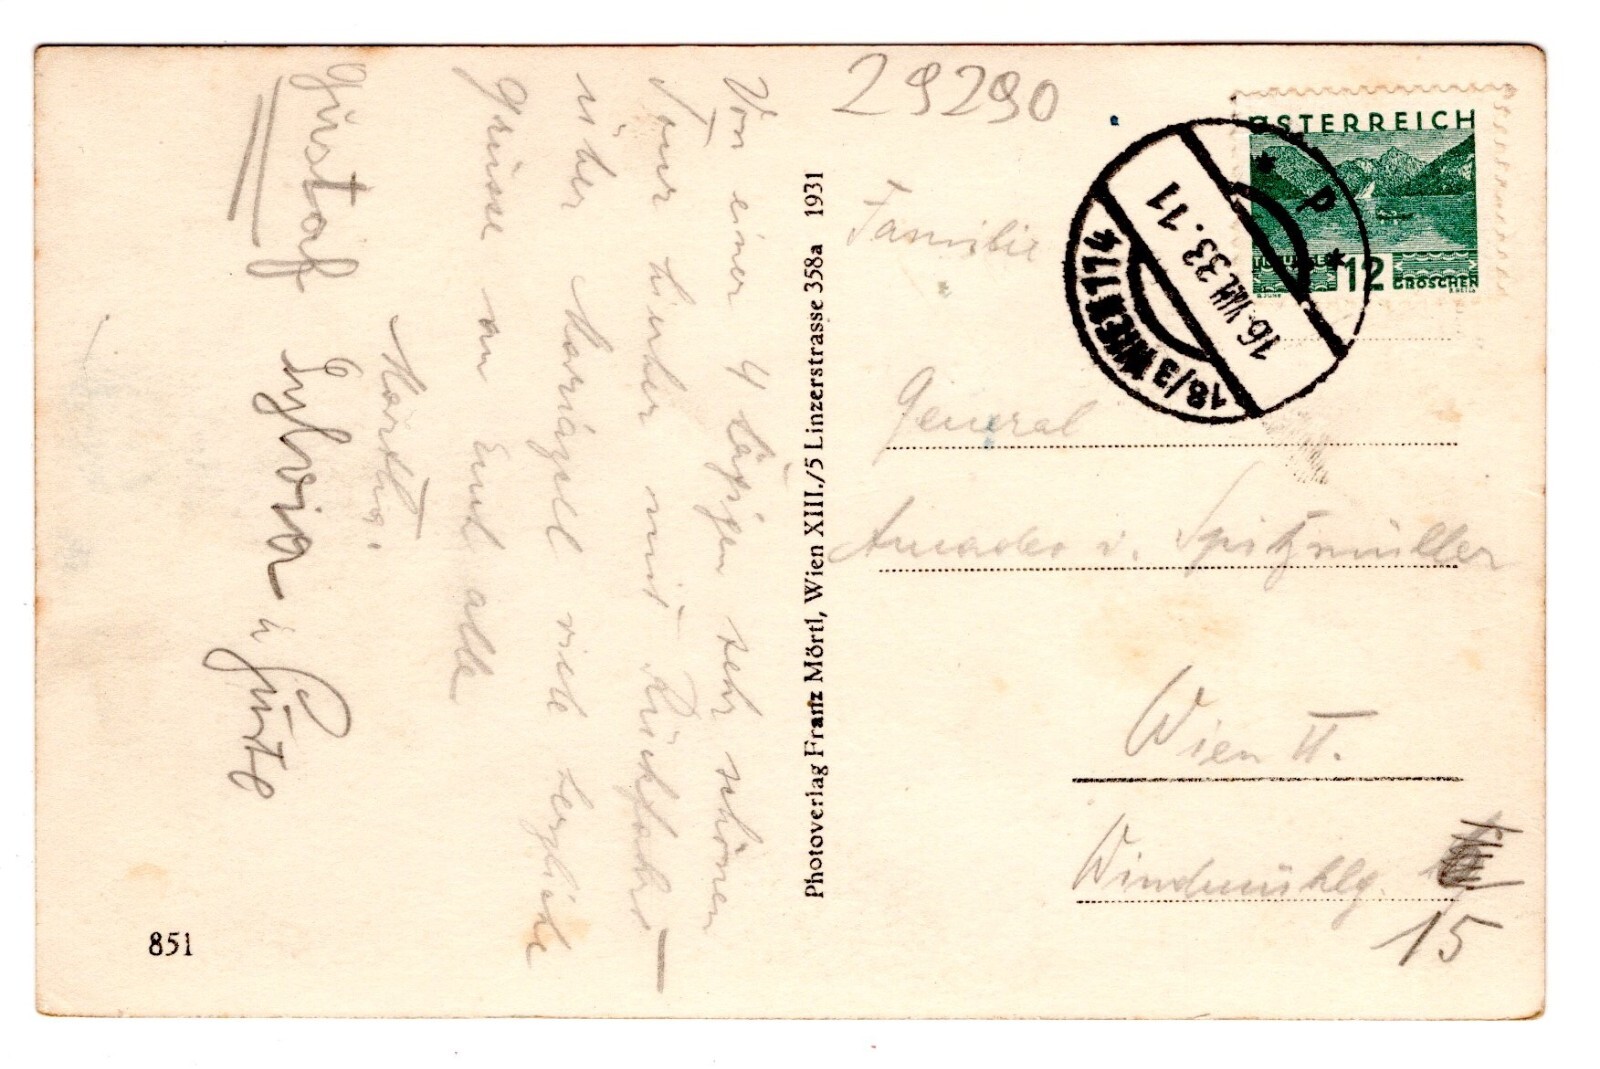 Von einer 4 tägigen sehr schönen
Tour hierher mit Rückfahrt
über Mariazell viele herzliche
Grüsse an Euch alle
Herzlich
Gustaf Sylvia u
851
Photoverlag Franz Mörtl, Wien XIII./5 Linzerstrasse 358a 1931
29290
ÖSTERREICH
12
GROSCHEN
18/3 WIEN 174
16.VIII.33.11
* P *
Familie
General
Amadeo v. Spitzmüller
Wien II.
Windmühlg.
15